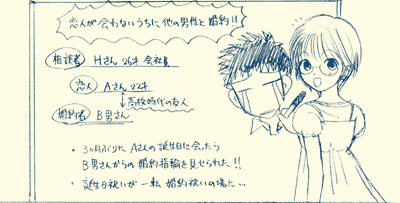 恋人が会わないうちに他の男性と婚約!!
相談者 Hさん 26才 会社員
恋人 Aさん 22才
高校時代の友人
婚約者 B男さん
・3ヵ月ぶりに Aさんの誕生日に会ったら
B男さんからの婚約指輪を見せられた!!
・誕生日祝いが一転 婚約祝いの場に…